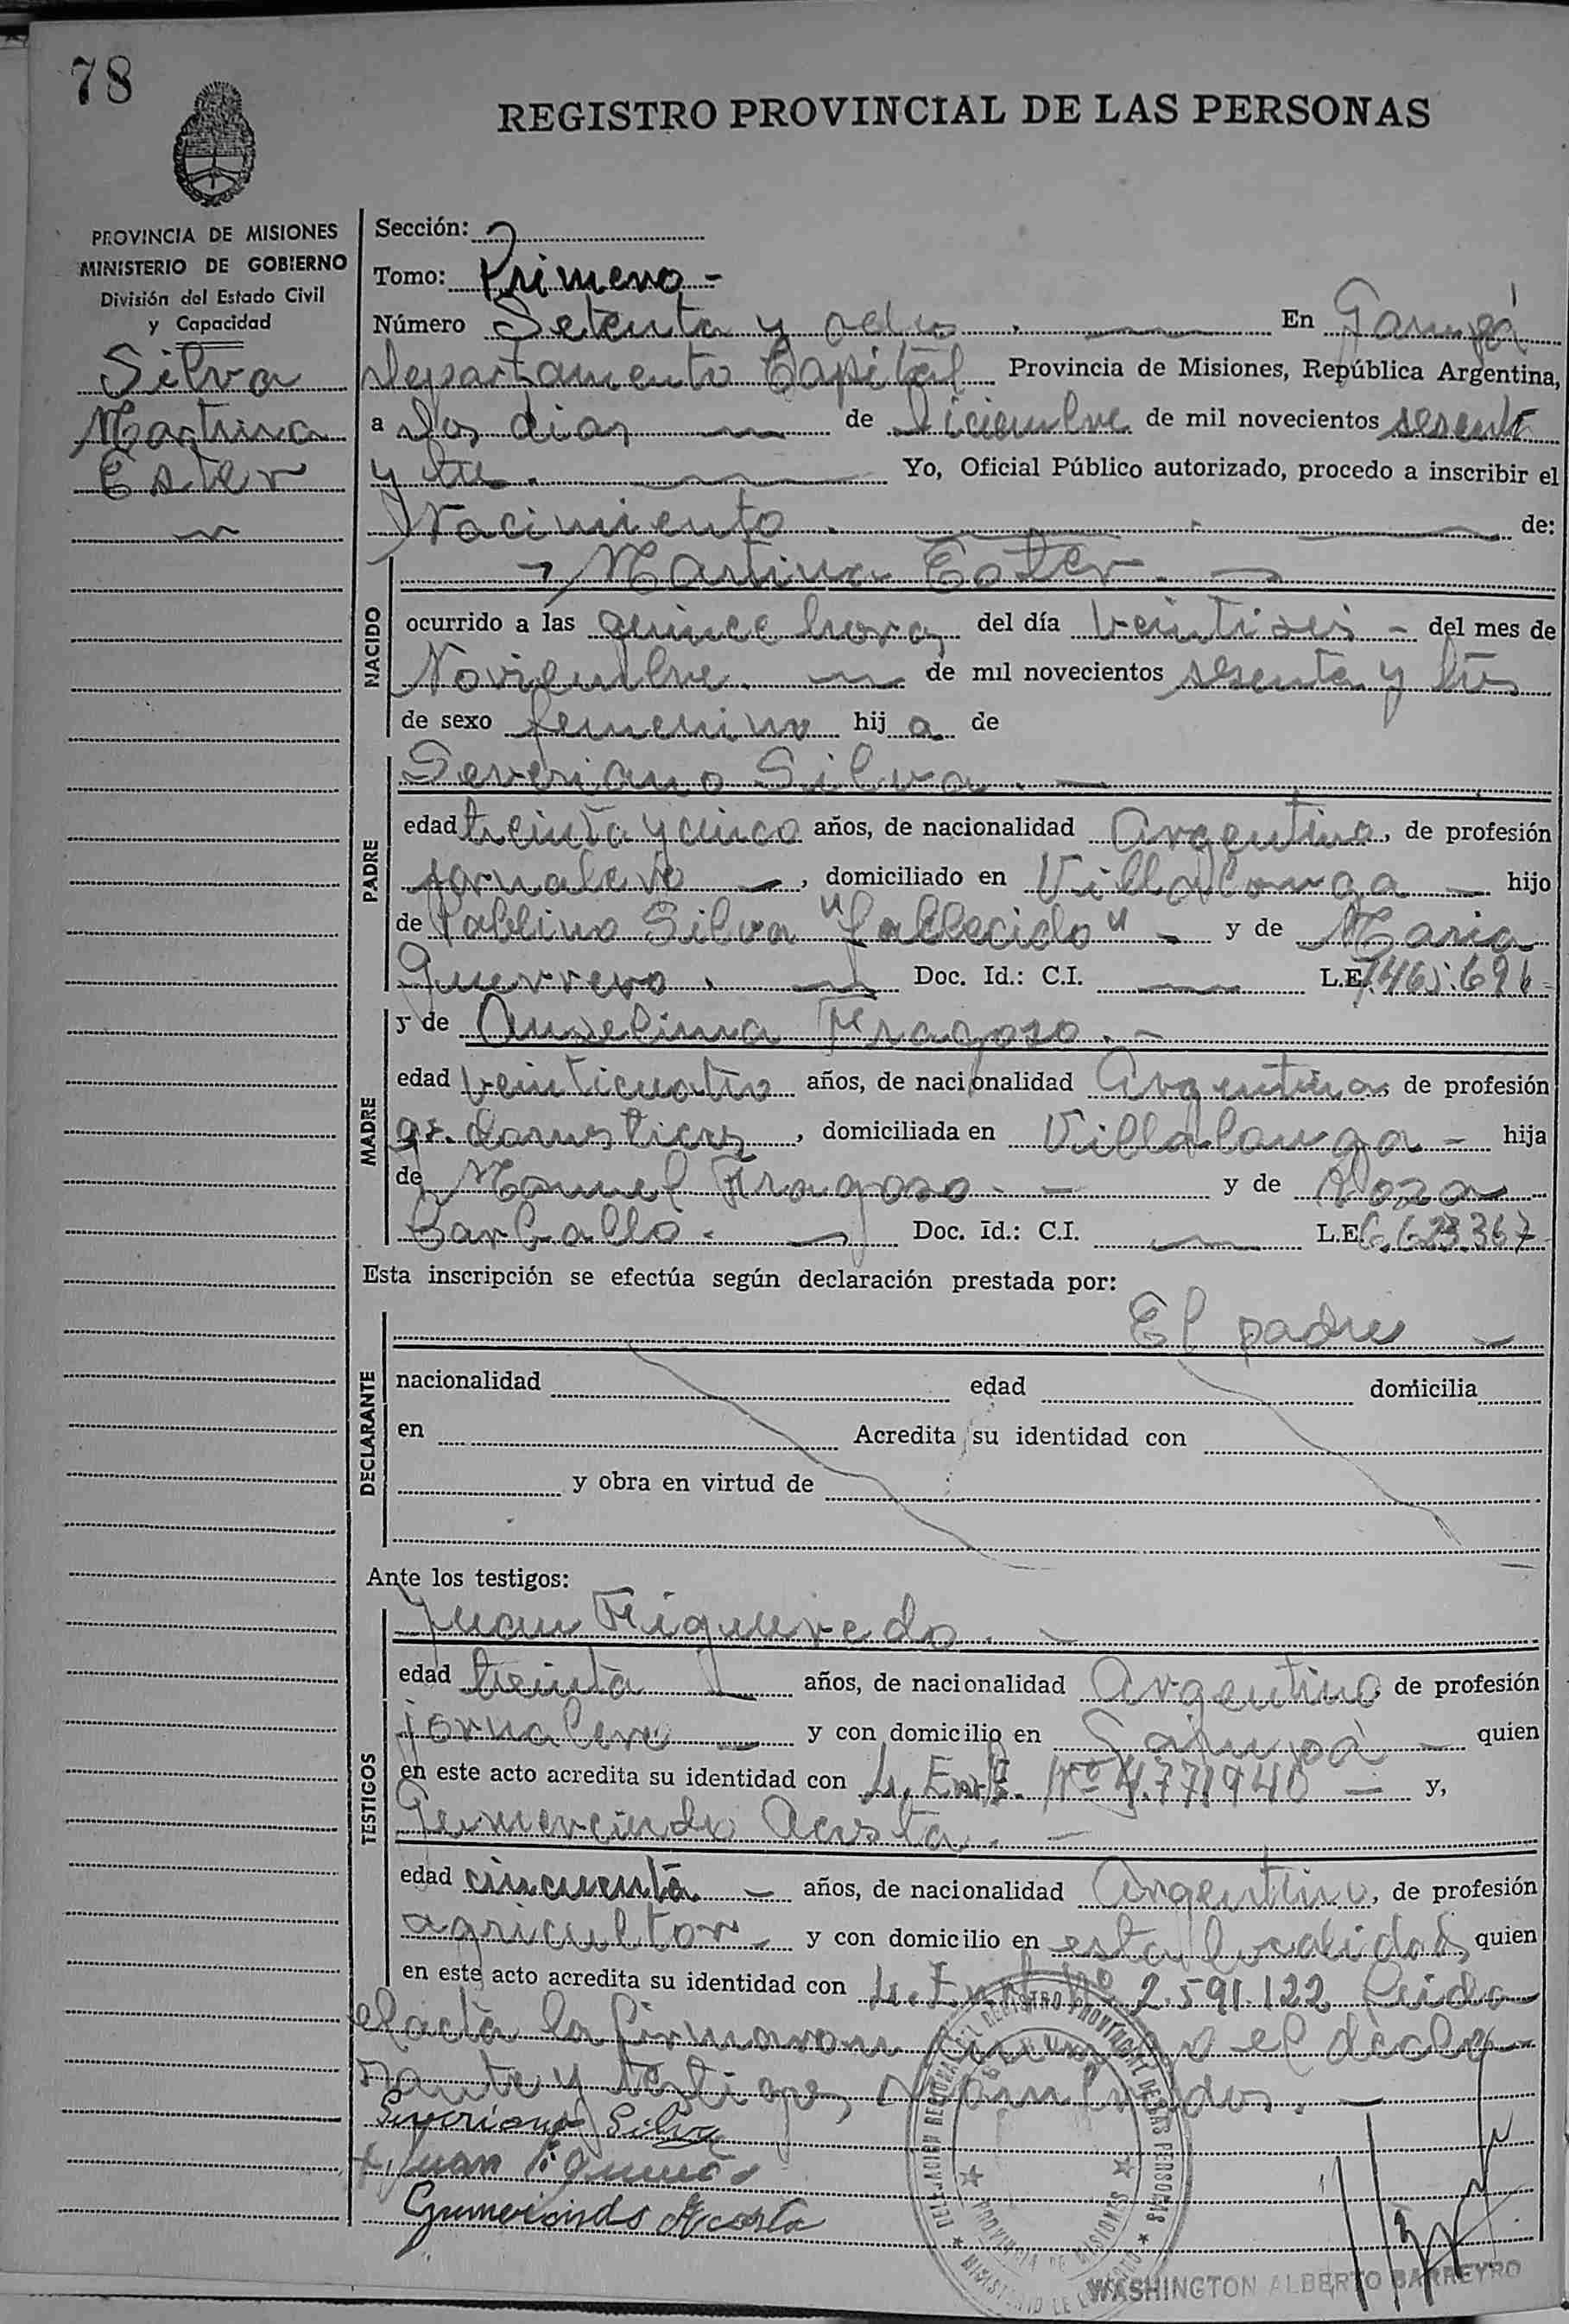 78
REGISTRO PROVINCIAL DE LAS PERSONAS
PROVINCIA DE MISIONES
MINISTERIO DE GOBIERNO
División del Estado Civil
y Capacidad
Silva
Martina
Ester
Sección:
Tomo: Primero -
Número Setenta y ocho. En Garupá
Departamento Capital Provincia de Misiones, República Argentina,
a dos dias de Diciembre de mil novecientos sesenta
y tres. Yo, Oficial Público autorizado, procedo a inscribir el
Nacimiento. de:
NACIDO
Martina Ester. -
ocurrido a las quince horas del día veintiseis - del mes de
Noviembre. de mil novecientos sesenta y tres
de sexo femenino hij a de
PADRE
Severiano Silva. -
edad treinta y cinco años, de nacionalidad Argentino, de profesión
jornalero -, domiciliado en Villalonga - hijo
de Pablino Silva "fallecido" - y de Maria
Guerrero. Doc. Id.: C.I. L.E.
MADRE
y de Anselma Fragoso. -
edad veinticuatro años, de nacionalidad Argentina, de profesión
q. domesticos, domiciliada en Villalonga - hija
de Manuel Fragoso - - y de Roza
Carballo. Doc. Id.: C.I. L.E. 6.623.367
Esta inscripción se efectúa según declaración prestada por:
DECLARANTE
El padre -
nacionalidad edad domicilia
en Acredita su identidad con
y obra en virtud de
Ante los testigos:
TESTIGOS
Juan Figueredo. -
edad treinta años, de nacionalidad Argentino, de profesión
jornalero - y con domicilio en Garupá - quien
en este acto acredita su identidad con L. Enrl. Nº - y,
Gumercindo Acosta. -
edad cincuenta - años, de nacionalidad Argentino, de profesión
agricultor - y con domicilio en esta localidad, quien
en este acto acredita su identidad con L. Enrl. Nº 2.591.122 Leida
el acta la firmaron conmigo el decla-
rante y testigos nombrados. -
Severiano Silva
Juan
Gumercindo Acosta
DELEGACION REGIONAL DEL REGISTRO PROVINCIAL DE LAS PERSONAS
PROVINCIA DE MISIONES
WASHINGTON ALBERTO BARREYRO